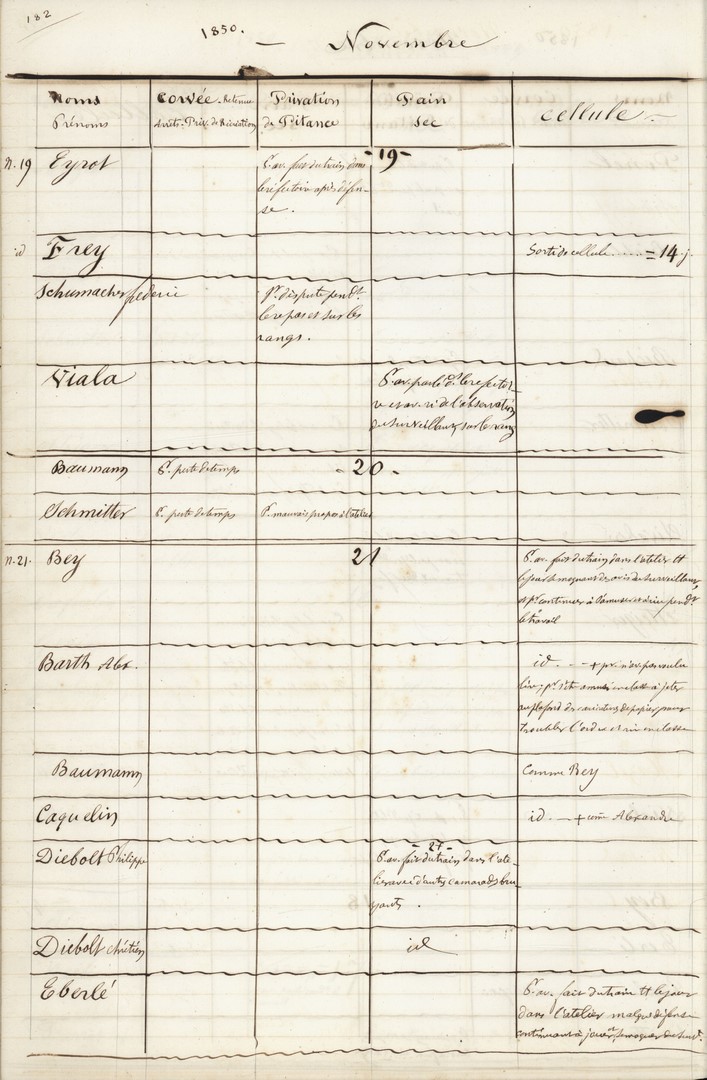 182
1850. — Novembre
Noms
Prénoms
Corvée. Retenue
Arrêts. Priv. de Récréation
Privation
de Pitance
Pain
Sec
Cellule
n. 19 Eyrot
- 19 -
P. av. fait du train dans
le réfectoire après défen-
se.
id Frey
Sorti de cellule ..... = 14. j.
Schumacher fréderic
Pr. dispute pendt.
le repas et sur les
rangs.
Viala
P. av. parlé ds. le réfectoi-
re et av. ri de l'observation
du surveillant, sur le rang
Baumann
P. perte de temps
- 20 -
Schmitter
P. perte de temps
P. mauvais propos à l'atelier
n. 21. Bey
21
P. av. fait du train dans l'atelier tt
le jour se moquant des avis du surveillant,
et pr. continuer à s'amuser et à rire pendt.
le travail
Barth Alex.
id. - - + pr. n'av. pas voulu
lire; pr. s'être amusé en classe à jeter
au plafond des de papier pour
troubler l'ordre et rire en classe
Baumann
Comme Bey
Caquelin
id. — + come Alexandre
Diebolt Philippe
- 21 -
P. av. fait du train dans l'ate-
lier avec d'autres camarades bru-
yants.
Diebolt chrétien
id
Eberlé
P. av. fait du train tt le jour
dans l'atelier malgré défense
continuant à jouer, se moquer du survt.